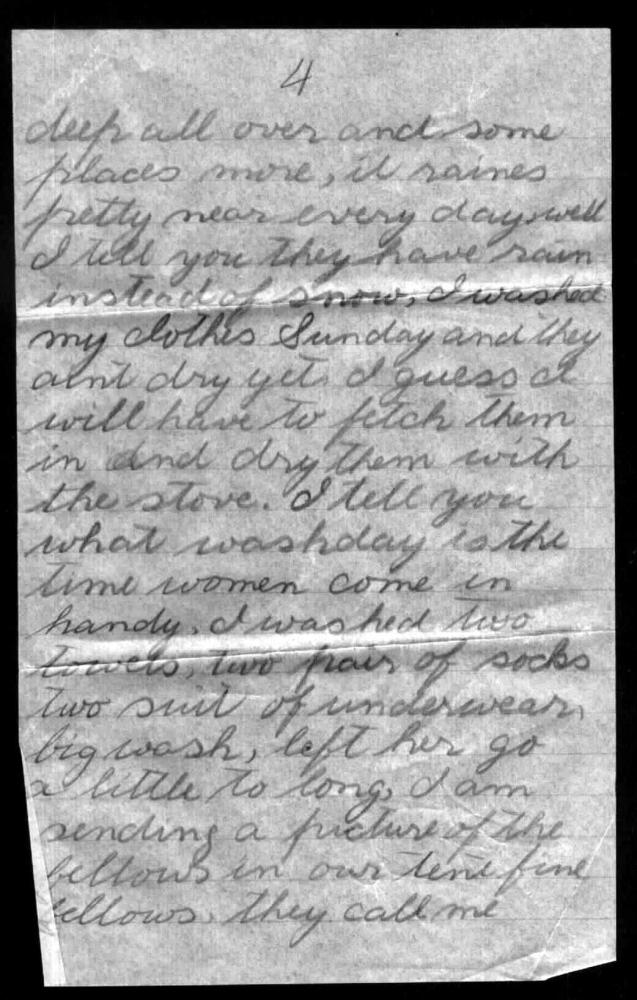 4
deep all over and some
places more, it raines
pretty near every day, well
I tell you they have rain
instead of snow, I washed
my clothes Sunday and they
aint dry yet. I guess I
will have to fetch them
in and dry them with
the stove. I tell you
what washday is the
time women come in
handy. I washed two
towels, two pair of socks
two suit of underwear,
big wash, left her go
a little to long, I am
sending a picture of the
fellows in our tent fine
fellows. they call me